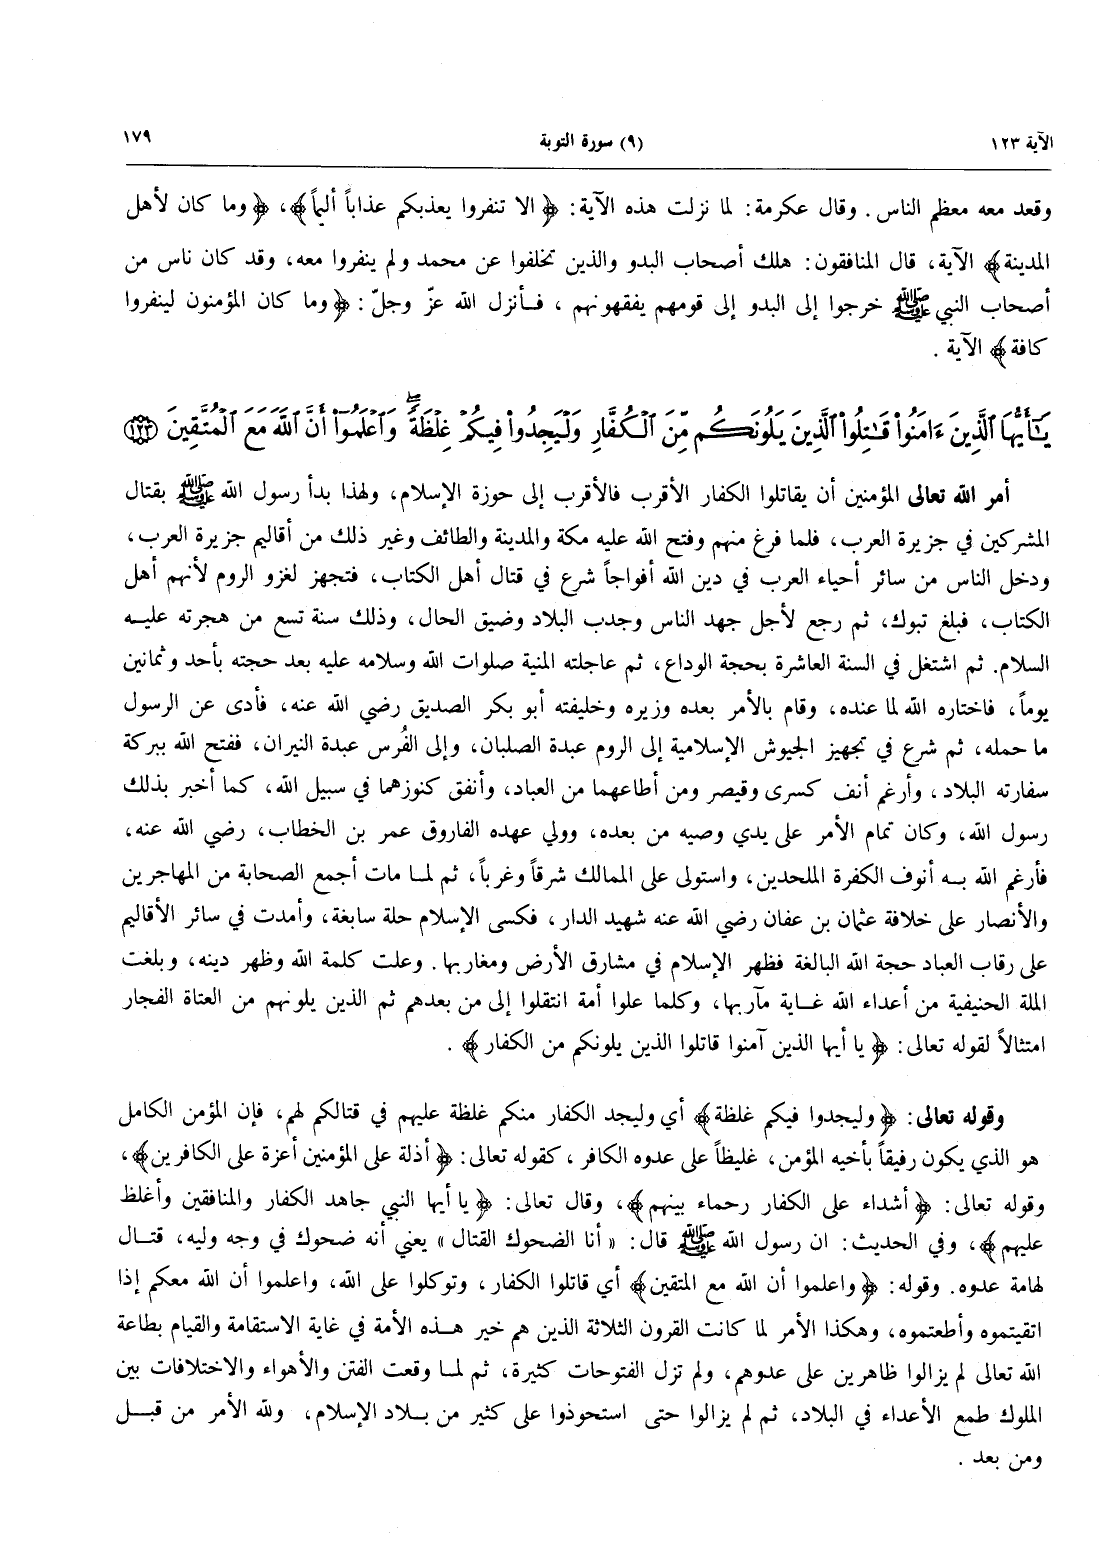 الآية ١٢٣ (٩) سورة التوبة ١٧٩
وقعد معه معظم الناس. وقال عكرمة: لما نزلت هذه الآية: ﴿الا تنفروا يعذبكم عذاباً أليماً﴾، ﴿وما كان لأهل
المدينة﴾ الآية، قال المنافقون: هلك أصحاب البدو والذين تخلفوا عن محمد ولم ينفروا معه، وقد كان ناس من
أصحاب النبي ﷺ خرجوا إلى البدو إلى قومهم يفقهونهم، فأنزل الله عزّ وجلّ: ﴿وما كان المؤمنون لينفروا
كافة﴾ الآية.
يَٰٓأَيُّهَا ٱلَّذِينَ ءَامَنُوا۟ قَٰتِلُوا۟ ٱلَّذِينَ يَلُونَكُم مِّنَ ٱلْكُفَّارِ وَلْيَجِدُوا۟ فِيكُمْ غِلْظَةً ۚ وَٱعْلَمُوٓا۟ أَنَّ ٱللَّهَ مَعَ ٱلْمُتَّقِينَ ١٢٣
أمر الله تعالى المؤمنين أن يقاتلوا الكفار الأقرب فالأقرب إلى حوزة الإسلام، ولهذا بدأ رسول الله ﷺ بقتال
المشركين في جزيرة العرب، فلما فرغ منهم وفتح الله عليه مكة والمدينة والطائف وغير ذلك من أقاليم جزيرة العرب،
ودخل الناس من سائر أحياء العرب في دين الله أفواجاً شرع في قتال أهل الكتاب، فتجهز لغزو الروم لأنهم أهل
الكتاب، فبلغ تبوك، ثم رجع لأجل جهد الناس وجدب البلاد وضيق الحال، وذلك سنة تسع من هجرته عليه
السلام. ثم اشتغل في السنة العاشرة بحجة الوداع، ثم عاجلته المنية صلوات الله وسلامه عليه بعد حجته بأحد وثمانين
يوماً، فاختاره الله لما عنده، وقام بالأمر بعده وزيره وخليفته أبو بكر الصديق رضي الله عنه، فأدى عن الرسول
ما حمله، ثم شرع في تجهيز الجيوش الإسلامية إلى الروم عبدة الصلبان، وإلى الفُرس عبدة النيران، ففتح الله ببركة
سفارته البلاد، وأرغم أنف كسرى وقيصر ومن أطاعهما من العباد، وأنفق كنوزهما في سبيل الله، كما أخبر بذلك
رسول الله، وكان تمام الأمر على يدي وصيه من بعده، وولي عهده الفاروق عمر بن الخطاب، رضي الله عنه،
فأرغم الله به أنوف الكفرة الملحدين، واستولى على الممالك شرقاً وغرباً، ثم لما مات أجمع الصحابة من المهاجرين
والأنصار على خلافة عثمان بن عفان رضي الله عنه شهيد الدار، فكسى الإسلام حلة سابغة، وأمدت في سائر الأقاليم
على رقاب العباد حجة الله البالغة فظهر الإسلام في مشارق الأرض ومغاربها. وعلت كلمة الله وظهر دينه، وبلغت
الملة الحنيفية من أعداء الله غاية مآربها، وكلما علوا أمة انتقلوا إلى من بعدهم ثم الذين يلونهم من العتاة الفجار
امتثالاً لقوله تعالى: ﴿يا أيها الذين آمنوا قاتلوا الذين يلونكم من الكفار﴾.
وقوله تعالى: ﴿وليجدوا فيكم غلظة﴾ أي وليجد الكفار منكم غلظة عليهم في قتالكم لهم، فإن المؤمن الكامل
هو الذي يكون رفيقاً بأخيه المؤمن، غليظاً على عدوه الكافر، كقوله تعالى: ﴿أذلة على المؤمنين أعزة على الكافرين﴾،
وقوله تعالى: ﴿أشداء على الكفار رحماء بينهم﴾، وقال تعالى: ﴿يا أيها النبي جاهد الكفار والمنافقين وأغلظ
عليهم﴾، وفي الحديث: ان رسول الله ﷺ قال: «أنا الضحوك القتال» يعني أنه ضحوك في وجه وليه، قتال
لهامة عدوه. وقوله: ﴿واعلموا أن الله مع المتقين﴾ أي قاتلوا الكفار، وتوكلوا على الله، واعلموا أن الله معكم إذا
اتقيتموه وأطعتموه، وهكذا الأمر لما كانت القرون الثلاثة الذين هم خير هذه الأمة في غاية الاستقامة والقيام بطاعة
الله تعالى لم يزالوا ظاهرين على عدوهم، ولم تزل الفتوحات كثيرة، ثم لما وقعت الفتن والأهواء والاختلافات بين
الملوك طمع الأعداء في البلاد، ثم لم يزالوا حتى استحوذوا على كثير من بلاد الإسلام، ولله الأمر من قبل
ومن بعد.